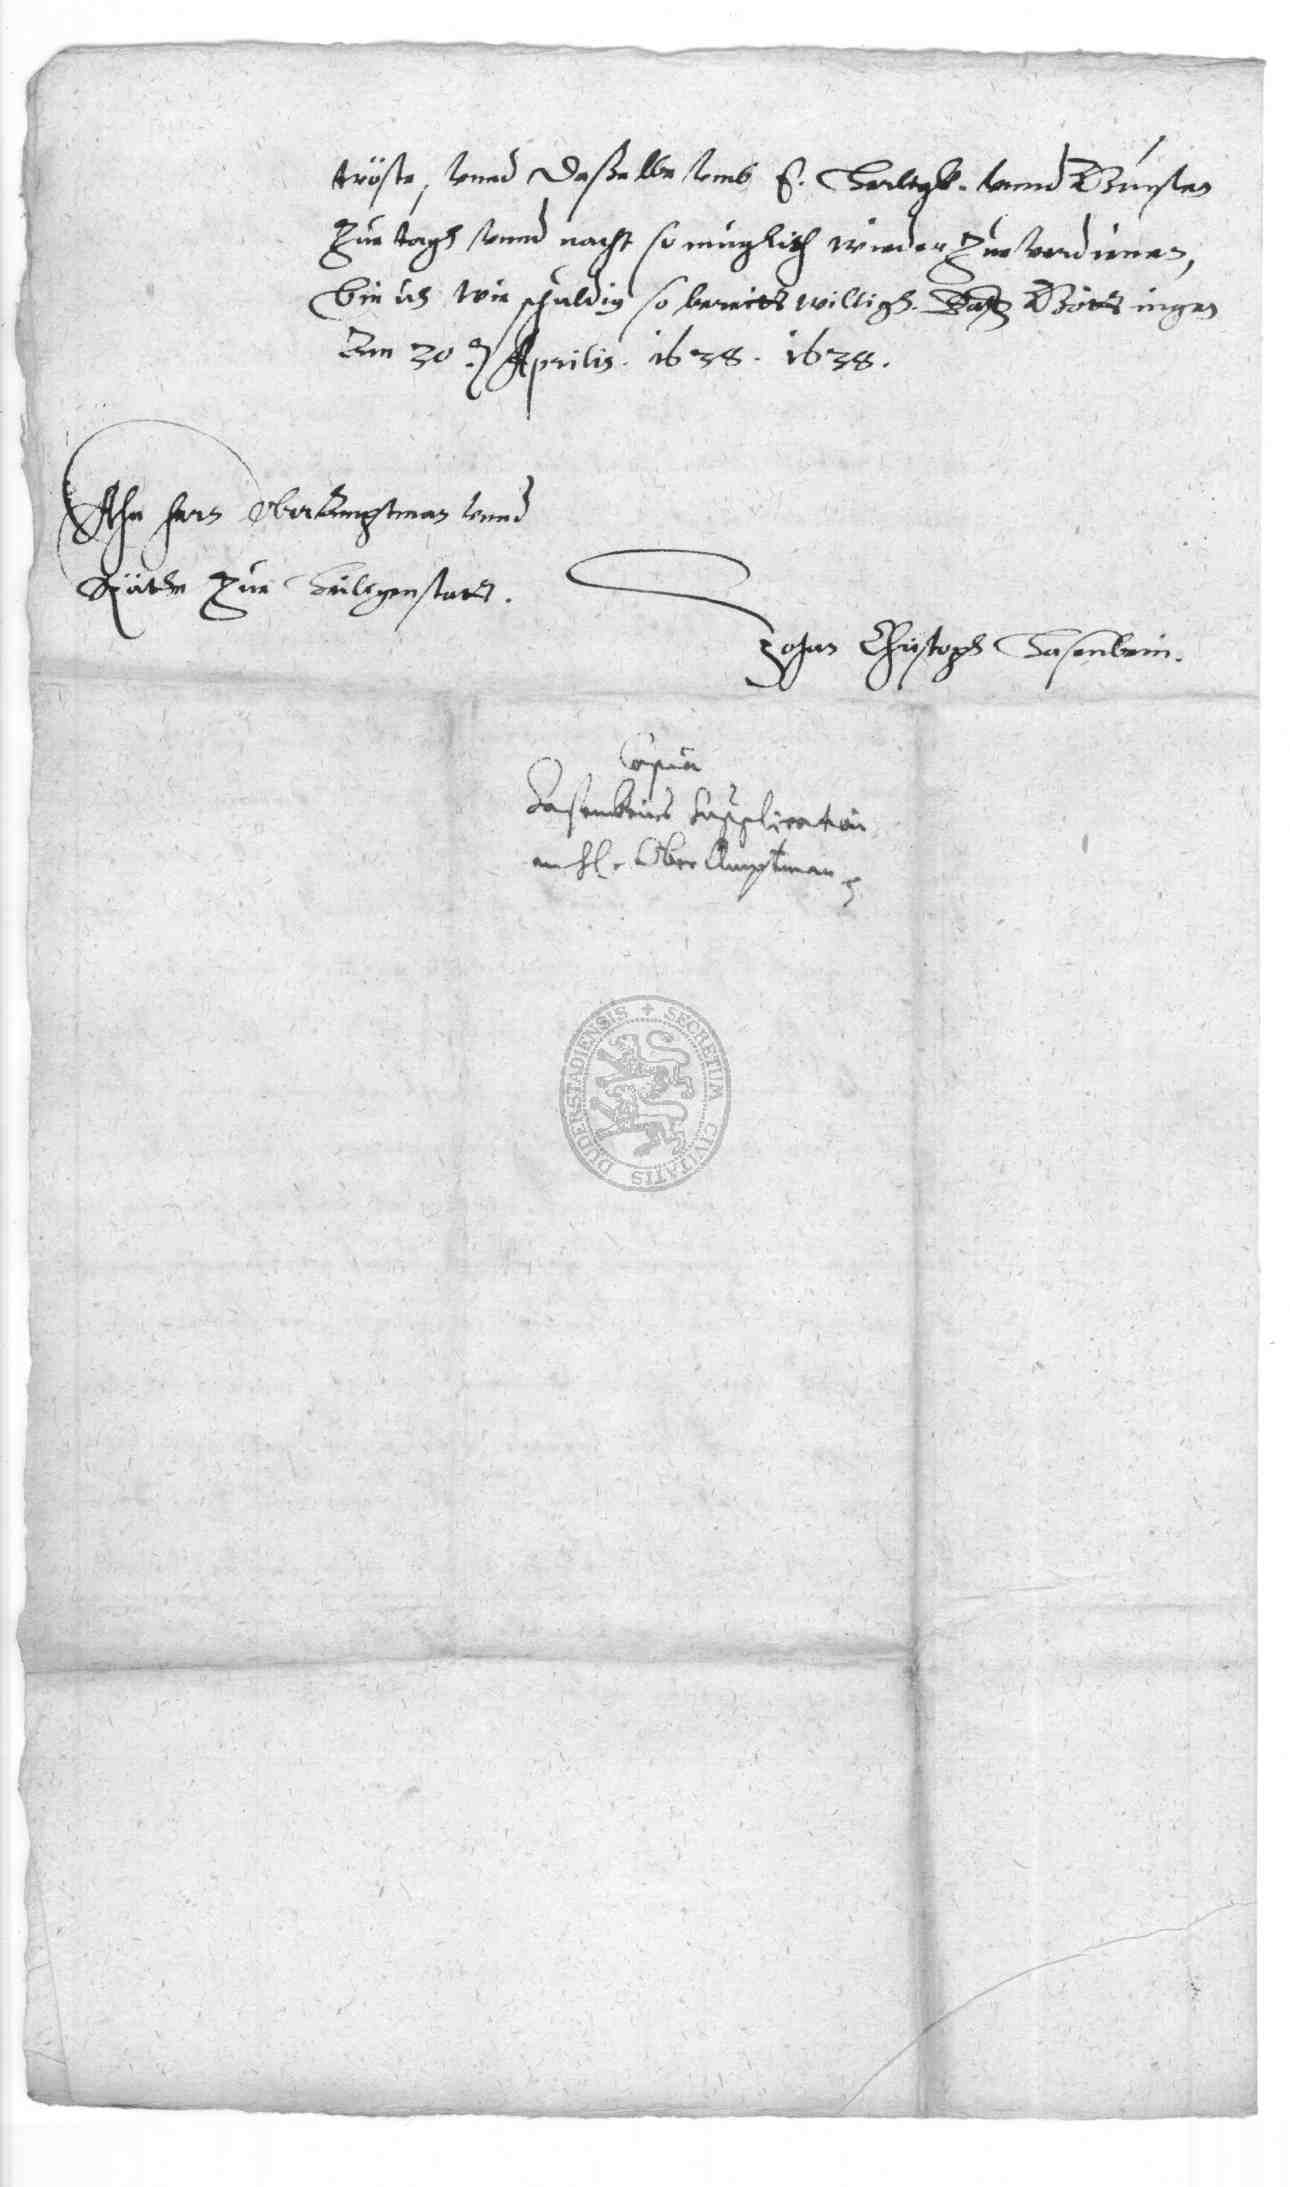 tröste, vnnd daßelbe vmb E. Herligk. vnnd Gunsten
Zue tagh vnnd nacht so muglich wieder Zue verdienen,
bin ich wie schuldig so bereitt willigh. Göttingen
Am 30 Aprilis. 1638. 1638.
Ahn hern OberAmptman vnnd
Räthe Zue Heiligenstatt.
Johan Christoph Hasenbein.
Copia
Hasenbeins Supplication
an H. Ober Amptman
SECRETUM CIVITATIS DUDERSTADIENSIS